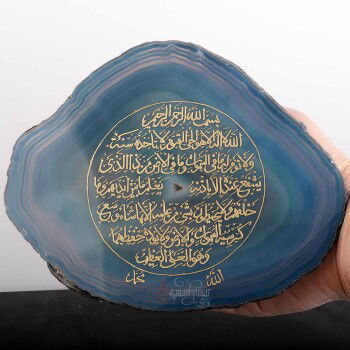 بسم الله الرحمن الرحيم
الله لا إله إلا هو الحي القيوم لا تأخذه سنة
ولا نوم له ما في السموات وما في الأرض من ذا الذي
يشفع عنده إلا بإذنه يعلم ما بين أيديهم وما
خلفهم ولا يحيطون بشيء من علمه إلا بما شاء وسع
كرسيه السموات والأرض ولا يؤده حفظهما
وهو العلي العظيم
الله محمد